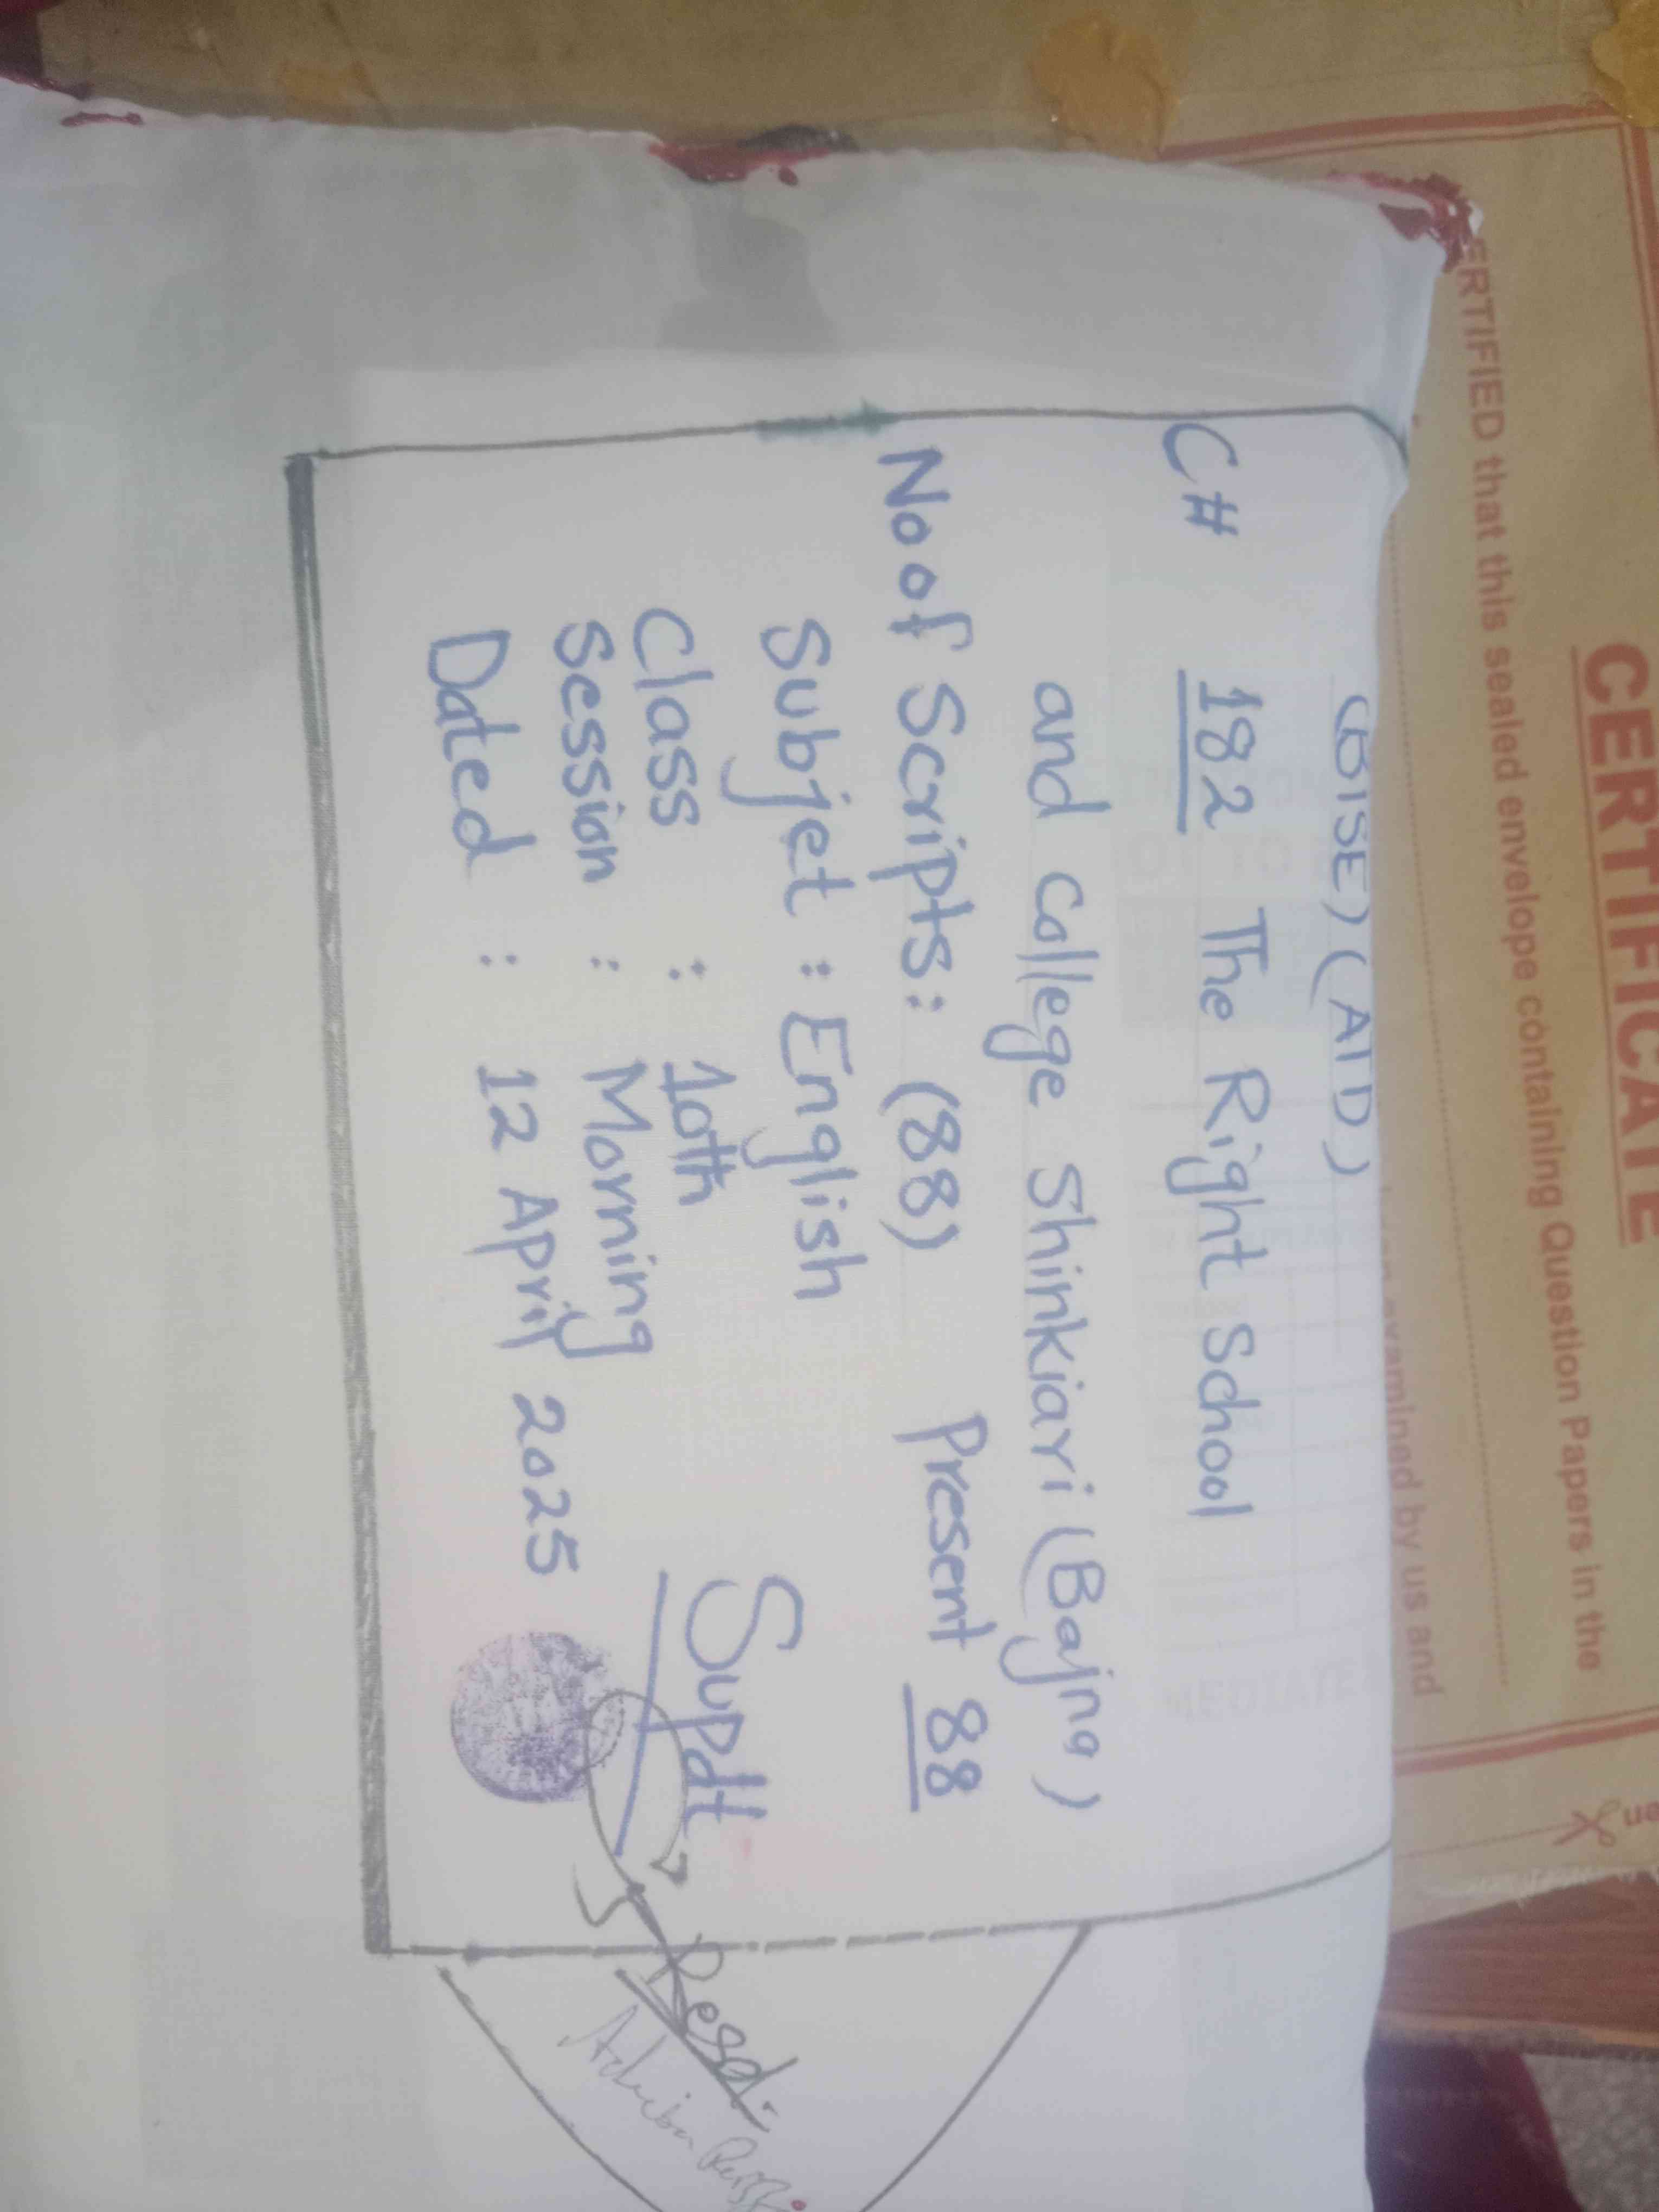 CERTIFICATE
ERTIFIED that this sealed envelope containing Question Papers in the
examined by us and
(BISE) (ATD)
C# 182 The Right School
and College Shinkiari (Bajna)
No of Scripts: (88) Present 88
Subjet : English
Class : 10th
Session : Morning
Dated : 12 April 2025
Supdt
Resd.